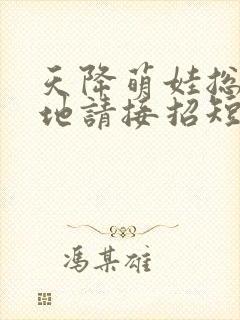 天降萌娃总
地請接招短
馮某雄